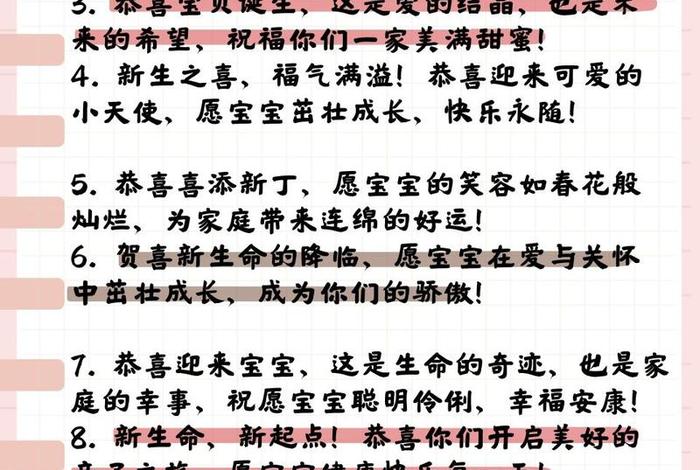 3. 恭喜宝贝诞生，这是爱的结晶，也是未
来的希望，祝福你们一家美满甜蜜！
4. 新生之喜，福气满溢！恭喜迎来可爱的
小天使，愿宝宝茁壮成长，快乐永随！
5. 恭喜喜添新丁，愿宝宝的笑容如春花般
灿烂，为家庭带来连绵的好运！
6. 贺喜新生命的降临，愿宝宝在爱与关怀
中茁壮成长，成为你们的骄傲！
7. 恭喜迎来宝宝，这是生命的奇迹，也是家
庭的幸事，祝愿宝宝聪明伶俐，幸福安康！
8. 新生命，新起点！恭喜你们开启美好的
亲子之旅，愿宝宝健康快乐每一天！